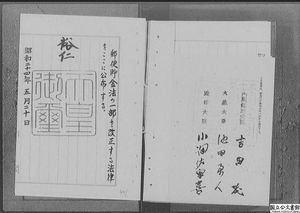 郵便貯金法の一部を改正する法律
をここに公布する。
裕仁
天皇
御璽
昭和二十四年五月二十日
内閣総理大臣
吉田茂
大蔵大臣
池田勇人
郵政大臣
国立公文書館